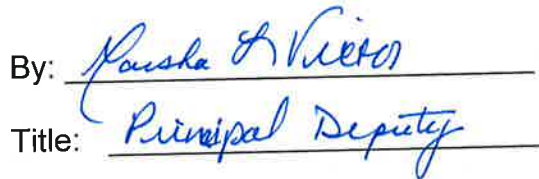 By: Marsha L Victor
Title: Principal Deputy